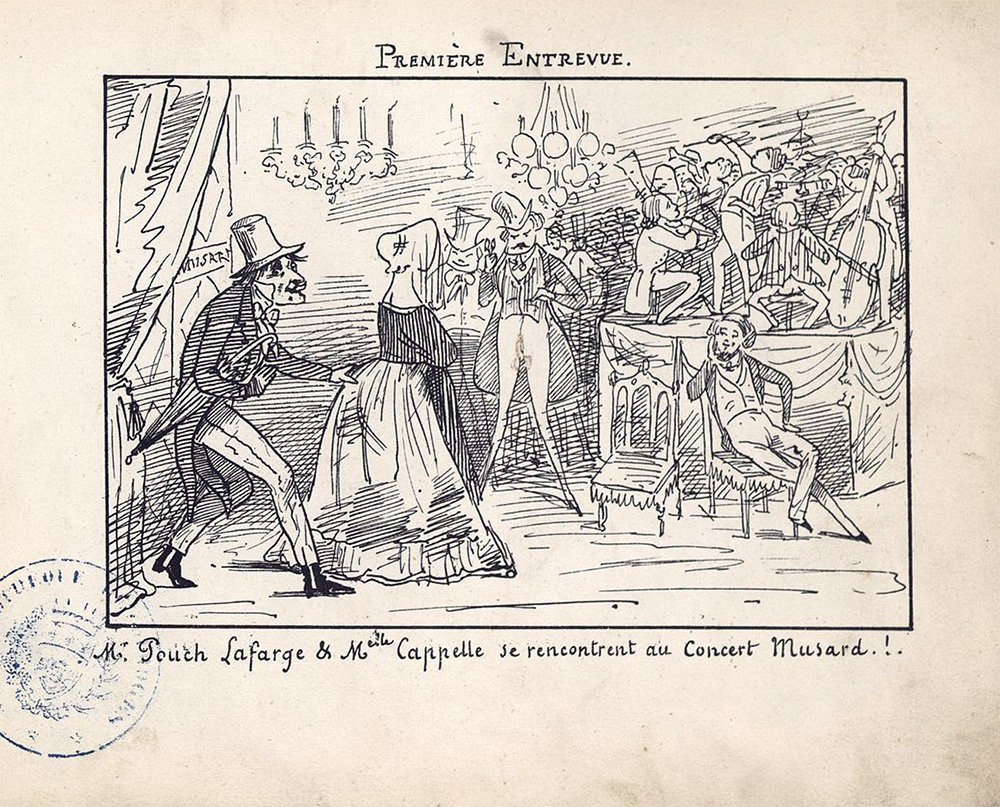 PREMIÈRE ENTREVUE.
MUSARD
Mr. Pouch Lafarge & Melle Cappelle se rencontrent au Concert Musard.!.